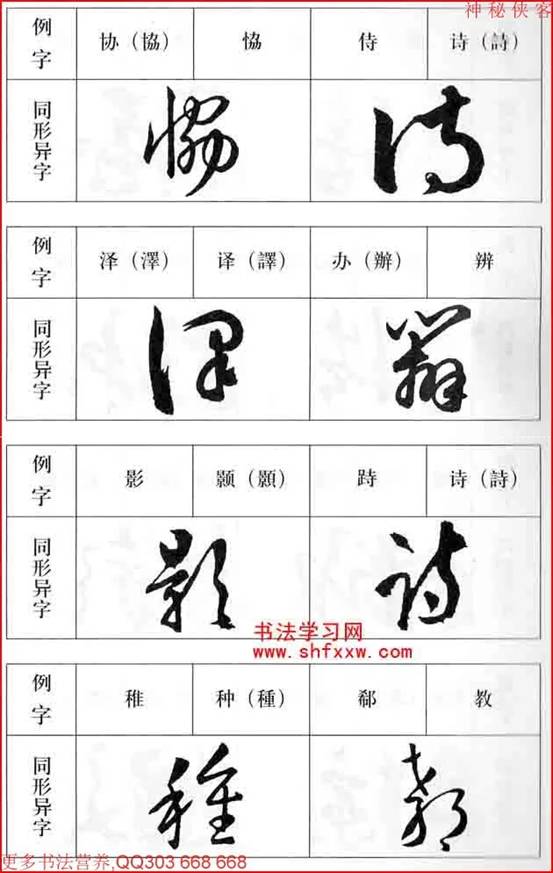 神秘侠客
例字 协（協） 恊 侍 诗（詩）
同形异字
例字 泽（澤） 译（譯） 办（辦） 辨
同形异字
例字 影 颢（顥） 跱 诗（詩）
同形异字
书法学习网
www.shfxxw.com
例字 稚 种（種） 郗 教
同形异字
更多书法营养,QQ303 668 668